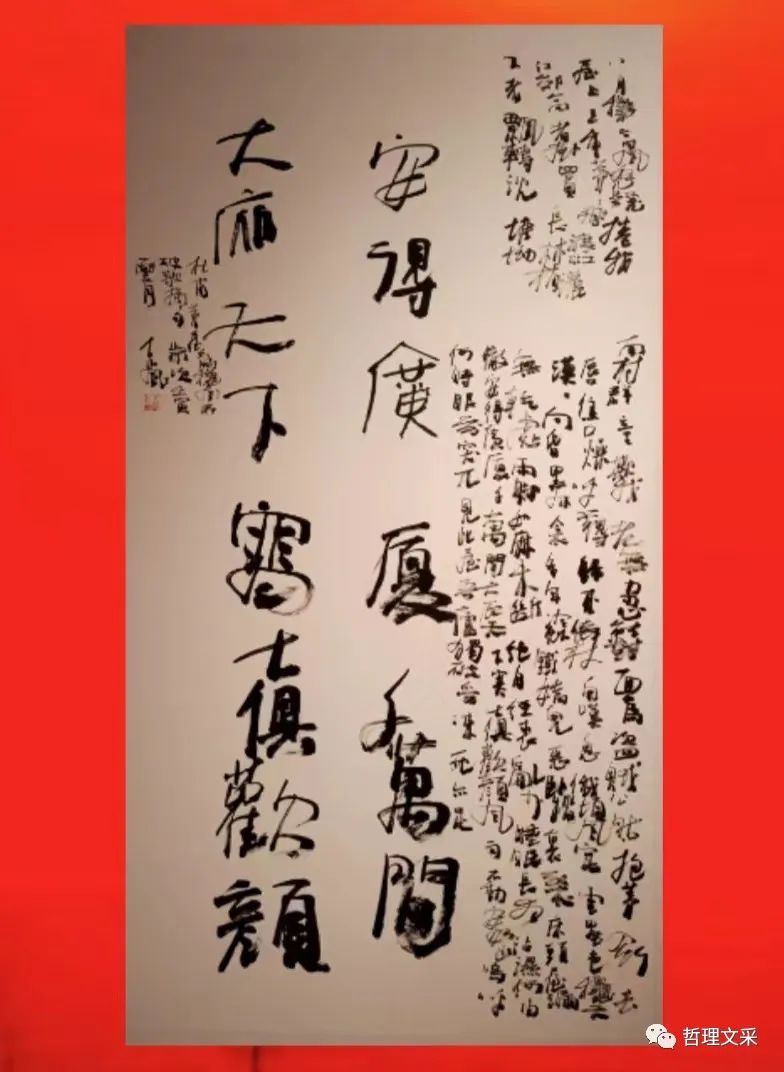 八月秋高風怒號捲我
屋上三重茅茅飛渡江灑
江郊高者掛罥長林梢
下者飄轉沉塘坳
南村群童欺老無忍對面為盜賊公然抱茅入竹去
唇焦口燥呼不得歸來倚杖自嘆息俄頃風定雲墨色秋天
漠漠向昏黑布衾多年冷似鐵嬌兒惡臥踏裏裂床頭屋漏
無乾處雨腳如麻未斷絕自經喪亂少睡眠長夜沾濕何由
徹安得廣厦千萬間大庇天下寒士俱歡顏風雨不動安如山嗚呼
何時眼前突兀見此屋吾廬獨破吾凍死亦足
安得廣厦千萬間
大庇天下寒士俱歡顏
杜甫茅屋為秋風所
破歌摘句歲次
哲理文采